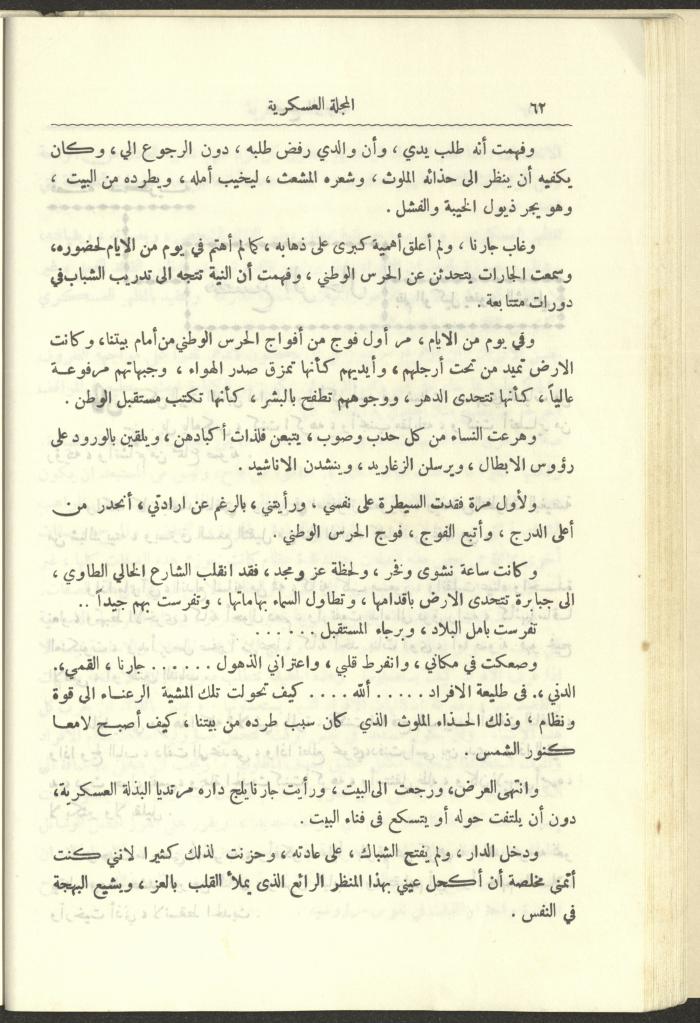 ٦٢
المجلة العسكرية
وفهمت أنه طلب يدي ، وأن والدي رفض طلبه ، دون الرجوع الي ، وكان
يكفيه أن ينظر الى حذائه الملوث ، وشعره المشعث ، ليخيب أمله ، ويطرده من البيت ،
وهو يجر ذيول الخيبة والفشل .
وغاب جارنا ، ولم أعلق أهمية كبرى على ذهابه ، كما لم أهتم في يوم من الايام لحضوره،
وسمعت الجارات يتحدثن عن الحرس الوطني ، وفهمت أن النية تتجه الى تدريب الشباب في
دورات متتابعة .
وفي يوم من الايام ، مر أول فوج من أفواج الحرس الوطني من أمام بيتنا، وكانت
الارض تميد من تحت أرجلهم ، وأيديهم كأنها تمزق صدر الهواء ، وجبهاتهم مرفوعة
عالياً ، كأنها تتحدى الدهر ، ووجوههم تطفح بالبشر ، كأنها تكتب مستقبل الوطن .
وهرعت النساء من كل حدب وصوب ، يتبعن فلذات أكبادهن ، ويلقين بالورود على
رؤوس الابطال ، ويرسلن الزغاريد ، وينشدن الاناشيد .
ولأول مرة فقدت السيطرة على نفسي . ورأيتني ، بالرغم عن ارادتي ، أنحدر من
أعلى الدرج ، وأتبع الفوج ، فوج الحرس الوطني .
وكانت ساعة نشوى وفخر ، ولحظة عز ومجد ، فقد انقلب الشارع الخالي الطاوي ،
الى جبابرة تتحدى الارض باقدامها ، وتطاول السماء بهاماتها ، وتفرست بهم جيداً ..
تفرست بامل البلاد ، وبرجاء المستقبل ......
وصعكت في مكاني ، وانفرط قلبي ، واعتراني الذهول ...... جارنا ، القمي،.
الدني ،. في طليعة الافراد ..... ألله .... كيف تحولت تلك المشية الرعناء الى قوة
ونظام ، وذلك الحذاء الملوث الذي كان سبب طرده من بيتنا ، كيف أصبح لامعا
كنور الشمس .
وانتهى العرض، ورجعت الى البيت ، ورأيت جارنا يلج داره مرتديا البذلة العسكرية،
دون أن يلتفت حوله أو يتسكع فى فناء البيت .
ودخل الدار ، ولم يفتح الشباك ، على عادته ، وحزنت لذلك كثيرا لانني كنت
أتمنى مخلصة أن أكحل عيني بهذا المنظر الرائع الذى يملأ القلب بالعز ، ويشيع البهجة
في النفس .